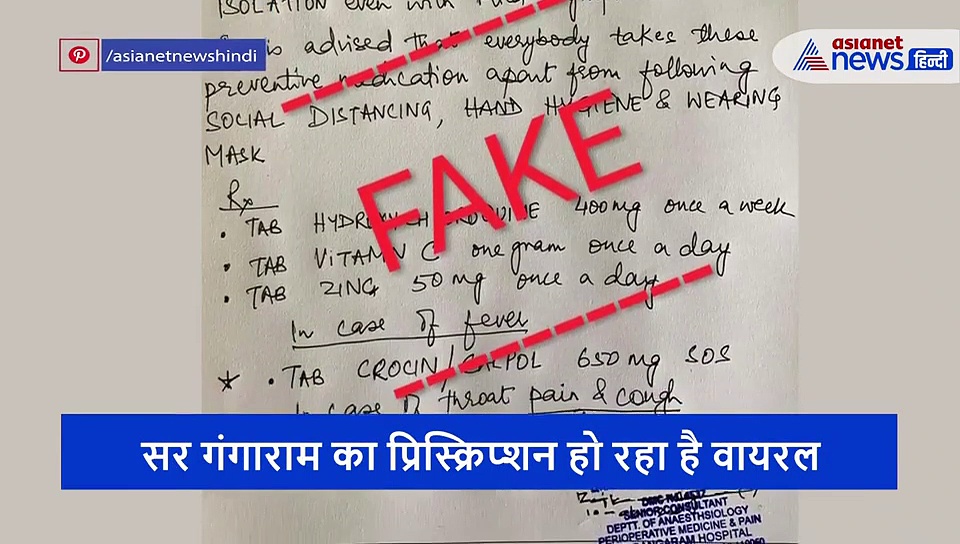 ISOLATION even with
is advised that everybody takes these
preventive medication apart from following
SOCIAL DISTANCING, HAND HYGIENE & WEARING
MASK
/asianetnewshindi
asianet
news हिन्दी
FAKE
Rx
• TAB HYDROXYCHLOROQUINE 400mg once a week
• TAB VITAMIN C one gram once a day
• TAB ZINC 50 mg once a day
In case of fever
• TAB CROCIN/CALPOL 650 mg SOS
In case of throat pain & cough
सर गंगाराम का प्रिस्क्रिप्शन हो रहा है वायरल
SENIOR CONSULTANT
DEPTT. OF ANAESTHSIOLOGY
PERIOPERATIVE MEDICINE & PAIN
HOSPITAL